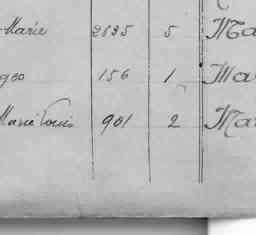 Marie 2835 5 Ma
geo 156 1 Mar
Marie Louis 901 2 Mar